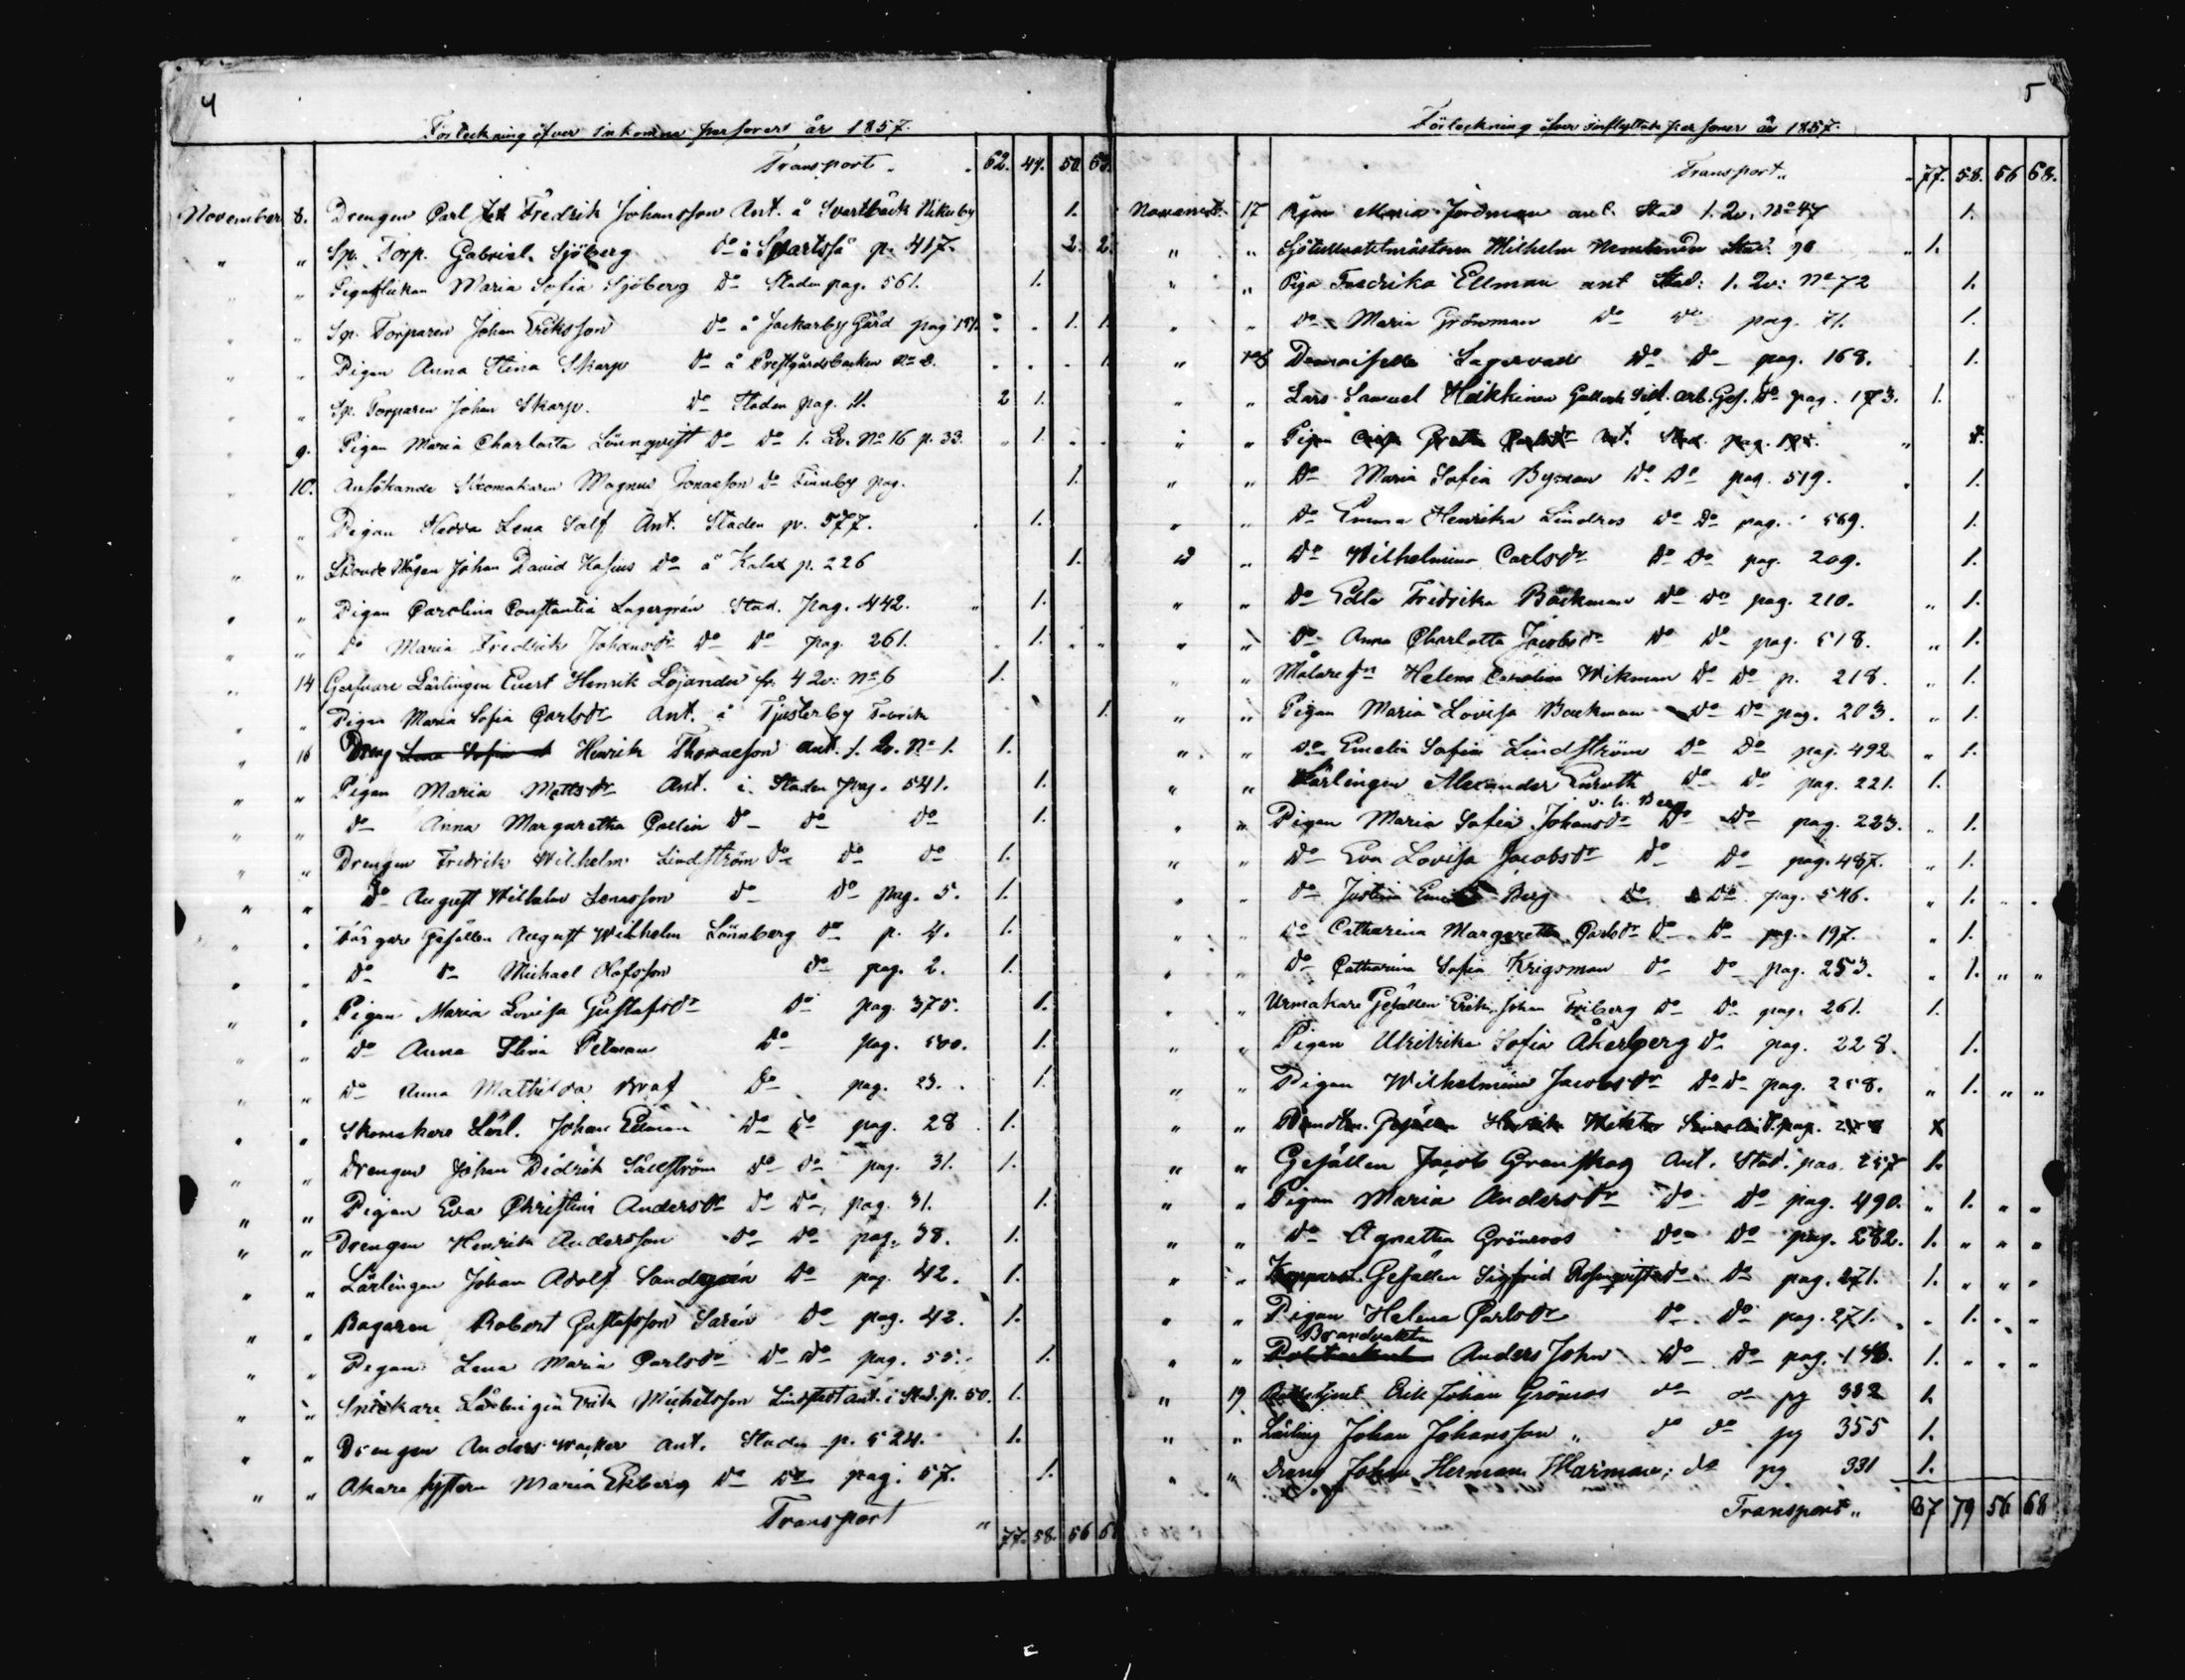 4
Förteckning öfver inkomne personer år 1857.
Transport 62. 47. 50. 63.
November 8. Drengen Carl Joh Fredrik Johansson Ant. å Svartbäck Nikuby 1.
" " Sp. Torp. Gabriel Sjöberg do å Svartså p. 417. 2. 2.
" " Pigaflickan Maria Sofia Sjöberg do Staden pag. 561. 1.
" " Sp. Torparen Johan Eriksson do å Jackarby Gård pag 1. 1.
" " Pigan Anna Stina Skarp do å Prestgårdsbacken No 2. 1.
" " Sp. Torparen Johan Skarp. do Staden pag. 11. 2 1.
9. Pigan Maria Charlotta Lönnqvist do do 1. Qv. No 16 p. 33. 1.
10. Ansökande Skomakaren Magnus Jonasson do Finnby pag. 1.
" " Pigan Hedda Lena Salf Ant. Staden p. 577. 1.
" " Johan David Hasius do å Kalax p. 226 1.
" " Pigan Carolina Constantia Lagergrén Stad. pag. 442. 1.
" " do Maria Fredrika Johansdr do do pag. 261. 1.
" 14 Garfvare Lärlingen Evert Henrik Lojander fr. 4 Qv: No 6 1.
" " Pigan Maria Sofia Carlsdr Ant. å Tjusterby Fabrik 1.
" 16 Dreng Henrik Thomasson ant. 1. Qv. No 1. 1.
" " Pigan Maria Mattsdr Ant. i Staden pag. 541. 1.
" " do Anna Margaretha Collin do do do 1.
" " Drengen Fredrik Wilhelm Lindström do do do 1.
" " do August Wilhelm Jonasson do do pag. 5. 1.
" " Färgare Gesällen August Wilhelm Lönnberg do p. 4. 1.
" " do do Michael Olofsson do pag. 2. 1.
" " Pigan Maria Lovisa Gustafsdr do pag. 375. 1.
" " do Anna Stina Pelman do pag. 500. 1.
" " do Anna Mathilda Graf do pag. 23. 1.
" " Skomakare Lärl. Johan Edman do do pag. 28 1.
" " Drengen Johan Didrik Sällström do do pag. 31. 1.
" " Pigan Eva Christina Andersdr do do pag. 31. 1.
" " Drengen Henrik Andersson do do pag. 38. 1.
" " Lärlingen Johan Adolf Sandgrén do pag. 42. 1.
" " Bagaren Robert Gustafsson Sarén do pag. 42. 1.
" " Pigan Lena Maria Carlsdr do do pag. 55. 1.
" " Snickare Lärlingen Erik Michelsson Lindstedt ant. i Stad. p. 50. 1.
" " Drengen Anders Wacker ant. Staden p. 524. 1.
" " Åkare systern Maria Ekberg do do pag. 57. 1.
Transport " 77. 58. 56 68
5
Förteckning öfver inflyttade personer år 1857.
Transport " 77. 58. 56 68.
November 17 Pigan Maria Jordman ant. Stad 1. Qv. No 47 1.
" " Wilhelm Stad. 90 1.
" " Piga Fredrika Ellman ant Stad: 1. Qv: No 72 1.
" " do Maria Grönman do do pag. 71. 1.
" " Demoiselle Lagervall do do pag. 168. 1.
" " Lars Samuel Heikkinen do pag. 173. 1.
" " Pigan Greta Carlsdr ant. Stad. pag.
" " do Maria Sofia Byman do do pag. 519. 1.
" " do Emma Henrika Lindros do do pag. 569. 1.
" " do Wilhelmina Carlsdr do do pag. 209. 1.
" " do Edla Fredrika Bäckman do do pag. 210. 1.
" " do Anna Charlotta Jacobsdr do do pag. 518. 1.
" " Målare Helena Carolina Wikman do do p. 218. 1.
" " Pigan Maria Lovisa Backman do do pag. 203. 1.
" " do Emelia Sofia Lindström do do pag. 492 1.
" " Lärlingen Alexander Enroth do do pag. 221. 1.
v. h. Berg
" " Pigan Maria Sofia Johansdr do do pag. 223. 1.
" " do Eva Lovisa Jacobsdr do do pag. 487. 1.
" " do Justina Berg do do pag. 546. 1.
" " do Catharina Margaretha Carlsdr do do pag. 197. 1.
" " do Catharina Sofia Krigsman do do pag. 253. 1. " "
" " Urmakare Gesällen Erik Johan Friberg do do pag. 261. 1.
" " Pigan Ulrika Sofia Åkerberg do pag. 228. 1.
" " Pigan Wilhelmina Jacobsdr do do pag. 258. 1. " "
" " Gesällen Henrik
" " Gesällen Jacob Granskog Ant. Stad. pag. 257 1.
" " Pigan Maria Andersdr do do pag. 490. 1. " "
" " do Agnetha Grönroos do do pag. 282. 1. " " "
" " Kopparsl. Gesällen Sigfrid Rosenqvist do do pag. 271. 1. " " "
" " Pigan Helena Carlsdr do do pag. 271. 1. " "
Brandvakten
" " Anders John do do pag. 148. 1. " " "
" 19 Erik Johan Grönroos do do pg 332 1.
" " Lärling Johan Johansson " do do pg 355 1.
" " Dreng Johan Herman Harman; do pg 331 1.
Transport " 87 79 56 68